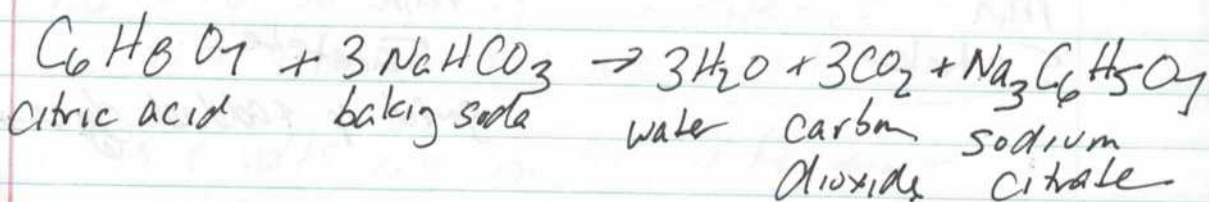 C6H8O7 + 3NaHCO3 → 3H2O + 3CO2 + Na3C6H5O7
citric acid baking soda water carbon sodium
dioxide citrate